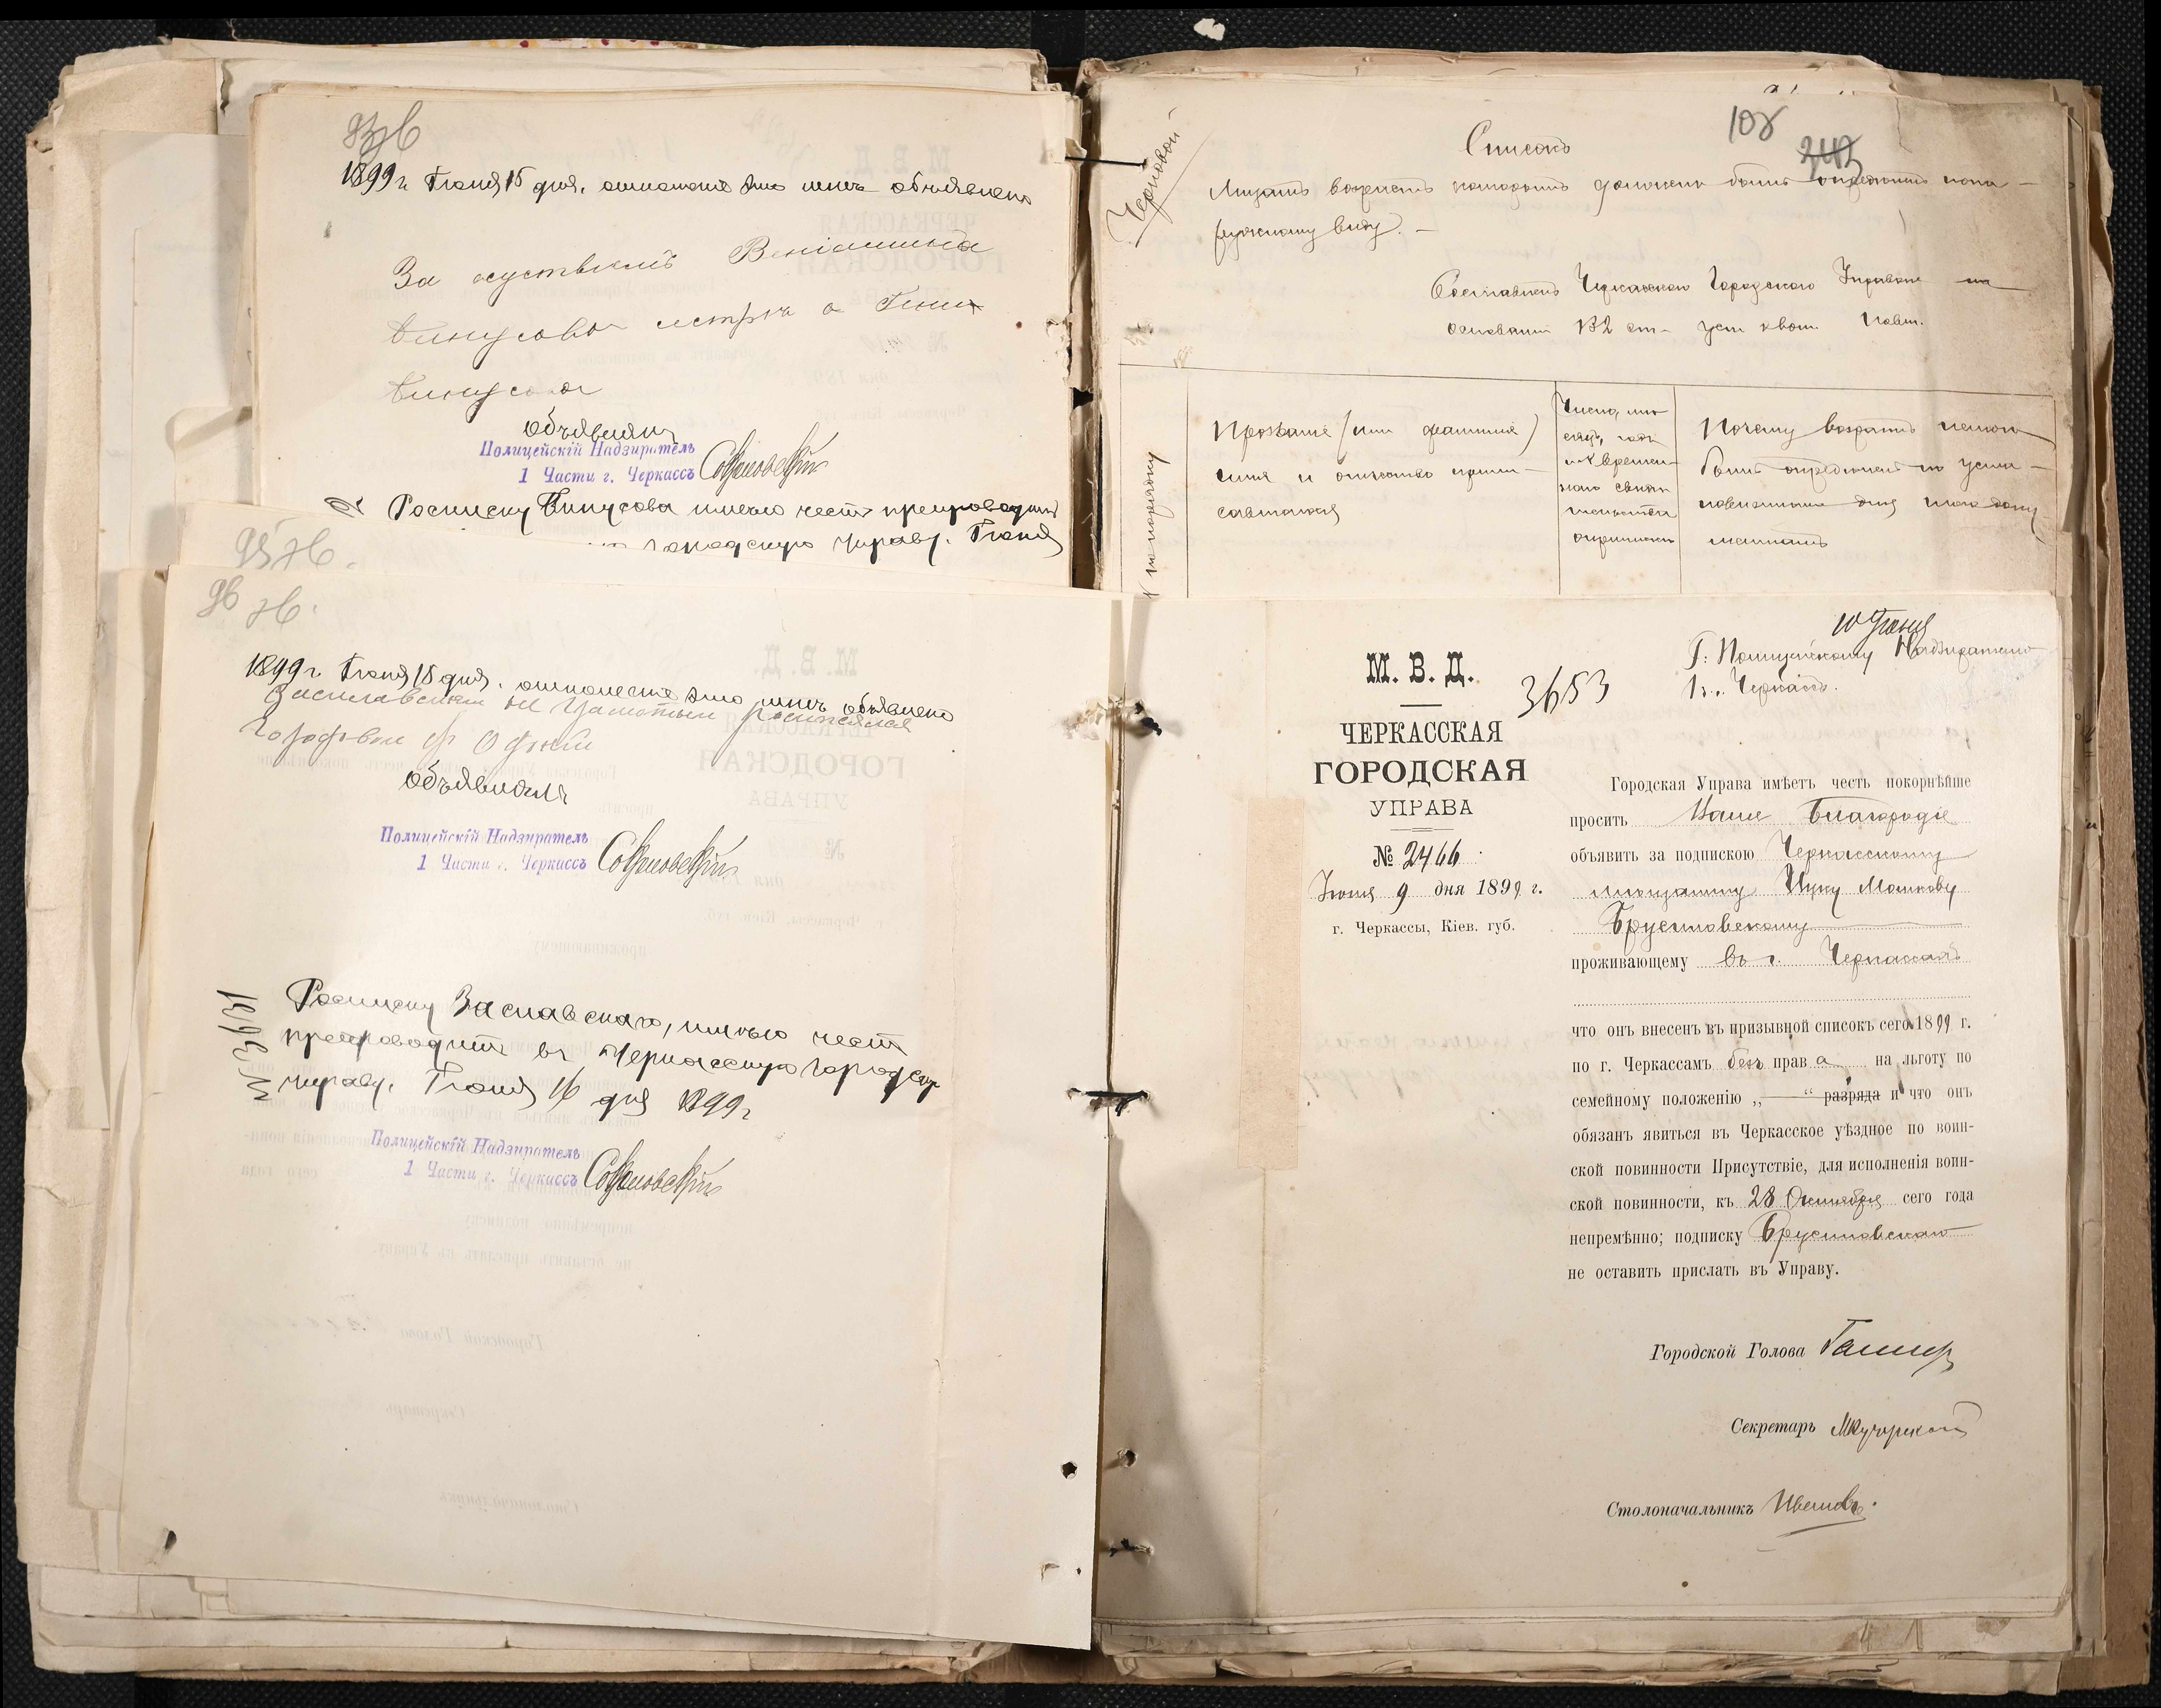 93 об
1899 г. Іюня 15 дня. отношеніе это мнѣ объявлено
За отсутствіемъ Веніамина
Винусова сестра
Винусова
объявилъ
Полицейскій Надзиратель
1 Части г. Черкассъ
Росписку Винусова имѣю честь препроводить
городскую управу. Іюня
95 об.
96 об.
1899 г. Іюня 15 дня. отношеніе это мнѣ объявлено
Заславскій не грамотный росписался
Городовой
объявилъ
Полицейскій Надзиратель
1 Части г. Черкассъ
№ 3631
Росписку Заславскаго, имѣю честь
препроводить въ Черкасскую городскую
управу. Іюня 16 дня 1899 г.
Полицейскій Надзиратель
1 Части г. Черкассъ
108
243
Черновой
Списокъ
Лицамъ возрастъ которыхъ долженъ быть опредѣленъ по на-
ружному виду.
Составленъ Черкасскою Городскою Управою на
основаніи 132 ст. уст. о воин. повин.
№ по порядку
Прозваніе (или фамилія)
имя и отчество призы-
ваемаго
Почему возрастъ не мог
быть опредѣленъ по уста-
новленнымъ для того доку
ментамъ
10 Іюня
Г. Полицейскому Надзирателю
1 ч. г. Черкассъ.
М. В. Д.
3653
ЧЕРКАССКАЯ
ГОРОДСКАЯ
УПРАВА
№ 2466
Іюня 9 дня 1899 г.
г. Черкассы, Кіев. губ.
Городская Управа имѣетъ честь покорнѣйше
просить Ваше Благородіе
объявить за подпискою Черкасскому
мѣщанину Ицку Мошкову
Брусиловскому
проживающему въ г. Черкассахъ
что онъ внесенъ въ призывной списокъ сего 1899 г.
по г. Черкассамъ безъ права на льготу по
семейному положенію „—“ разряда и что онъ
обязанъ явиться въ Черкасское уѣздное по воин-
ской повинности Присутствіе, для исполненія воин-
ской повинности, къ 28 Октября сего года
непремѣнно; подписку Брусиловскаго
не оставить прислать въ Управу.
Городской Голова
Секретарь
Столоначальникъ